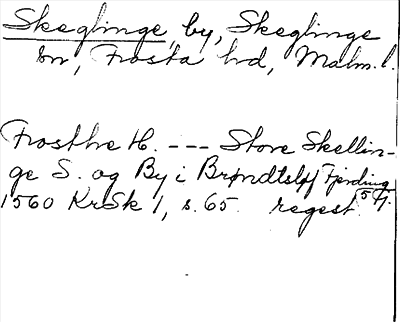 Skeglinge, by, Skeglinge
sn, Frosta hd, Malm. l.
Frosthe H. --- Store Skellin-
ge S. og By i Brøndtsløf Fjerding
1560 KrSk 1, s. 65. regest. 5/7.